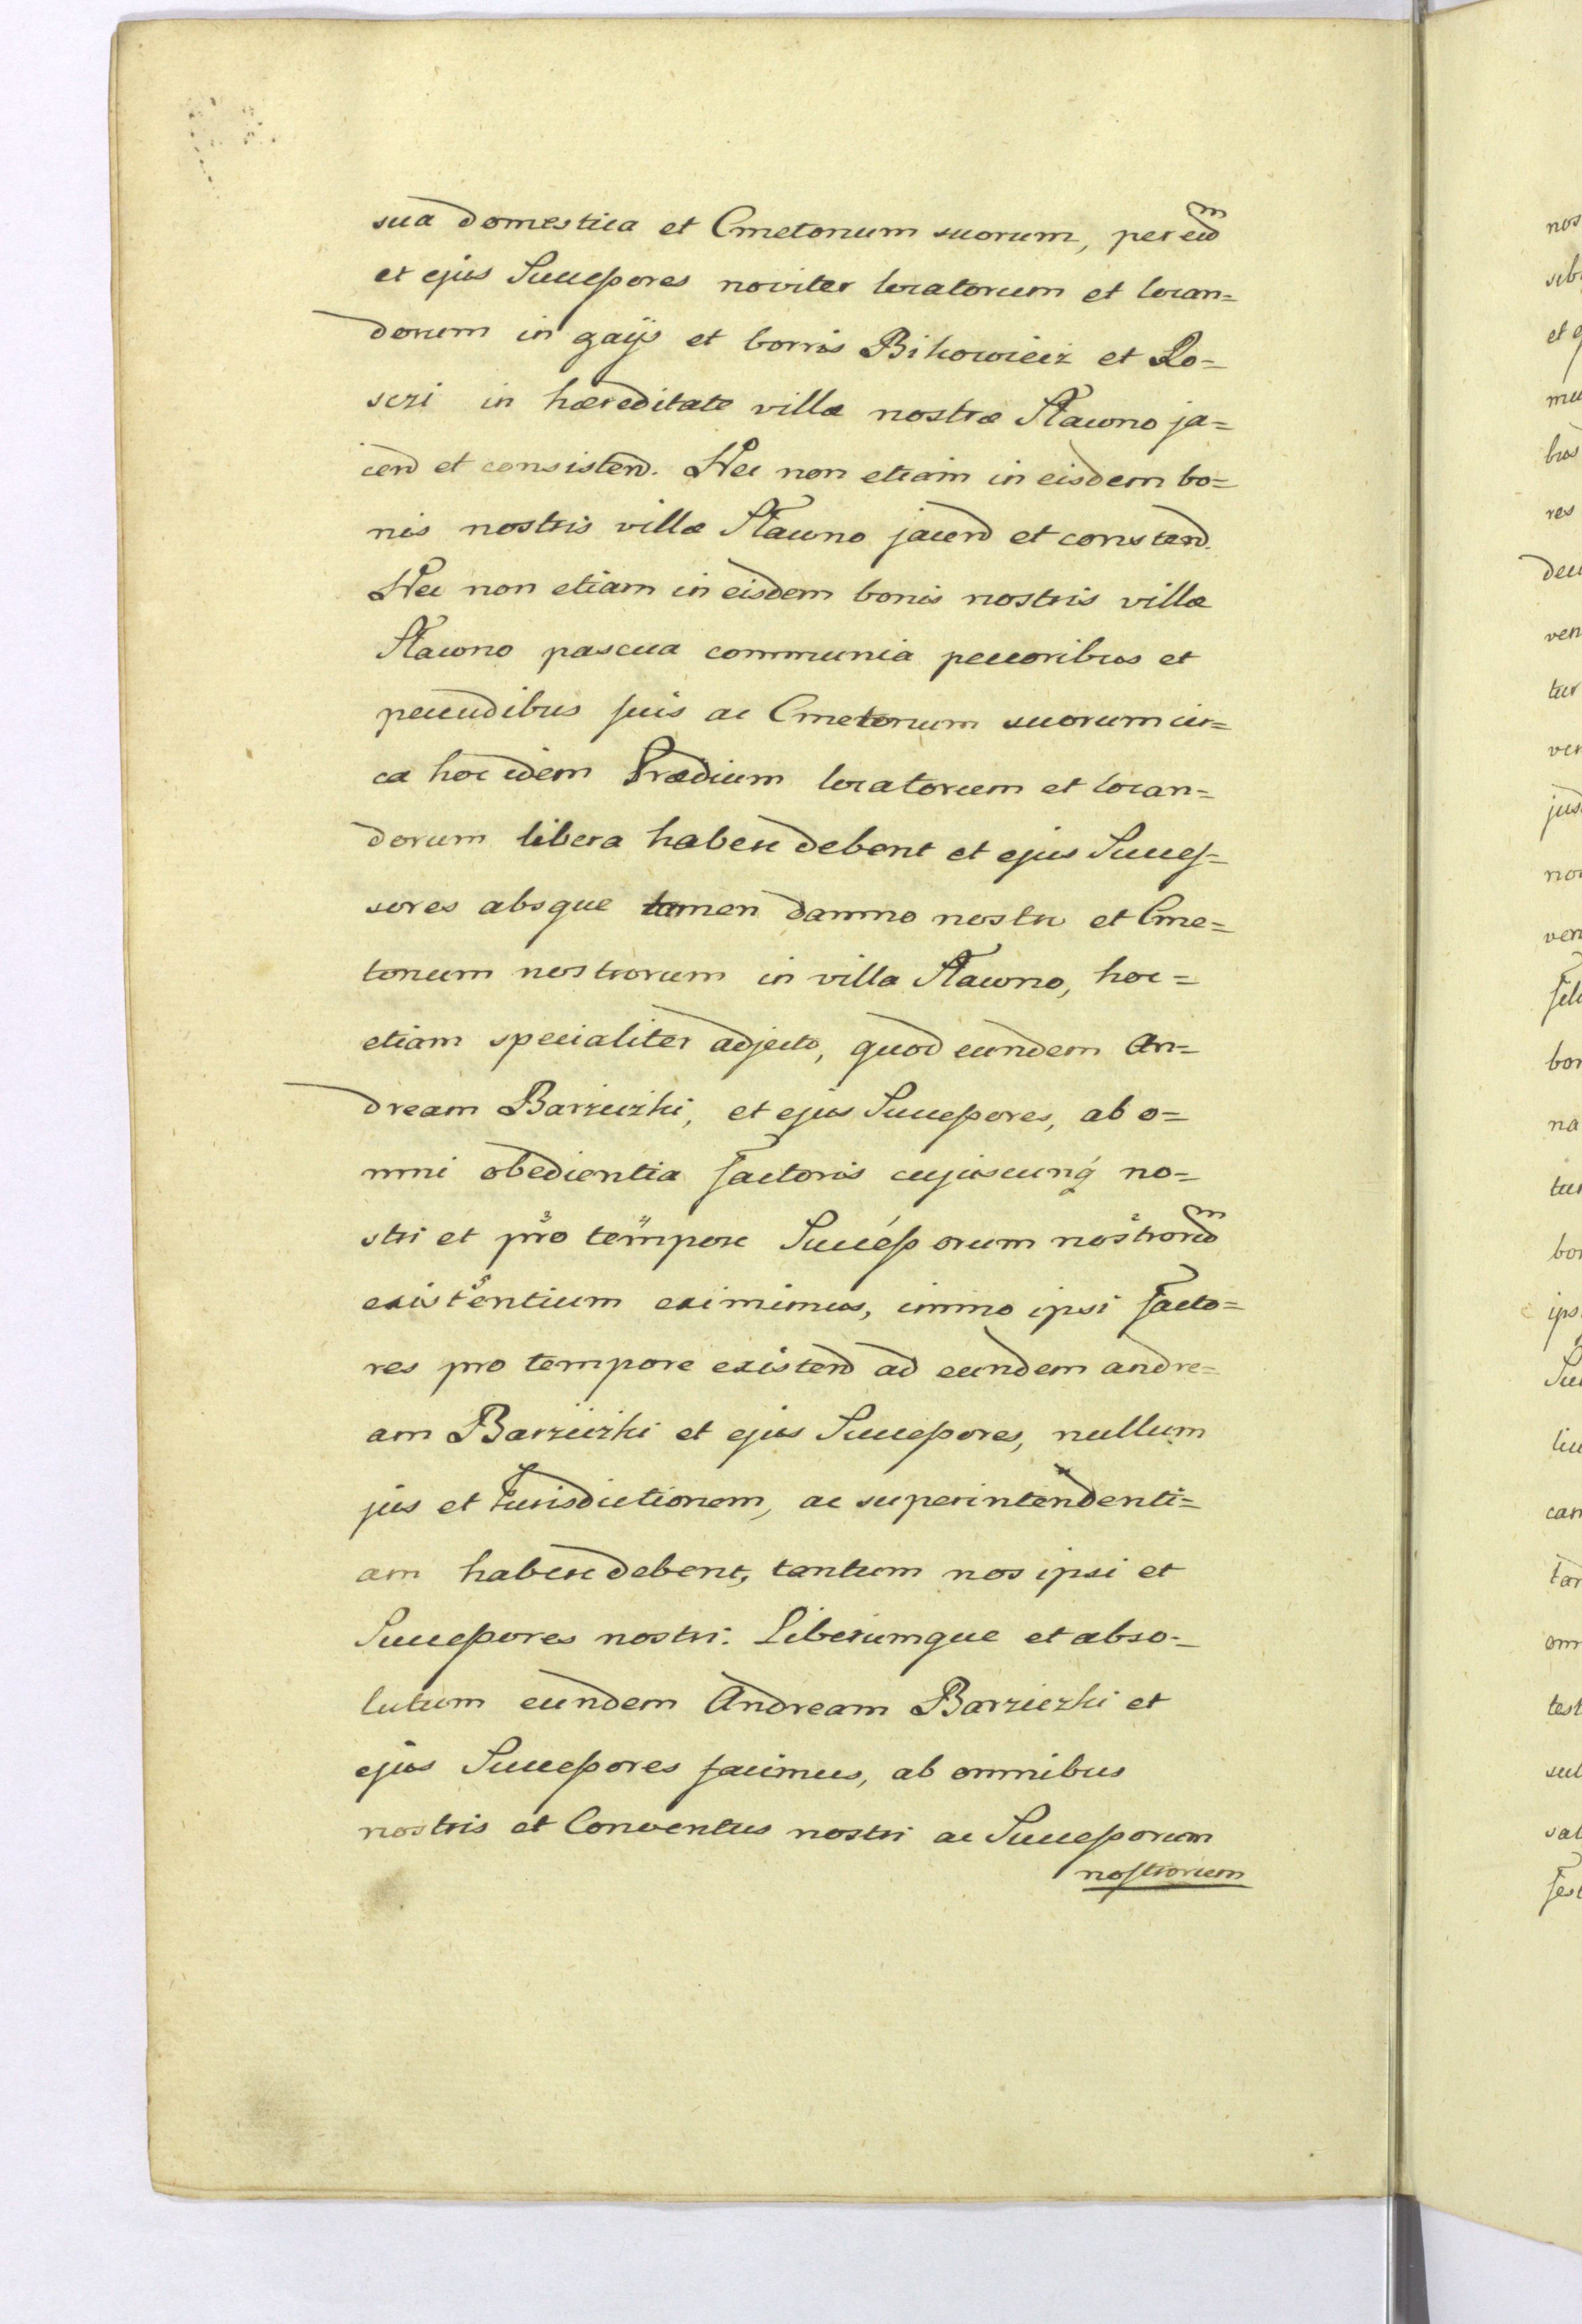 sua domestica et Cmetonum suorum, per eūd
et ejus Successores noviter locatorum et locan=
dorum in gaijs et borris Bikowiecz et Lo=
sczi in hæreditate villæ nostræ Stawno ja=
cend et consistend. Nec non etiam in eisdem bo=
nis nostris villæ Stawno jacend et constend.
Nec non etiam in eisdem bonis nostris villæ
Stawno pascua communia pecoribus et
pecudibus suis ac Cmetonum suorum cir=
ca hoc idem Prædium locatorum et locan=
dorum libera habere debent et ejus Succes=
sores absque tamen damno nostro et Cme=
tonum nostrorum in villa Stawno, hoc=
etiam specialiter adjecto, quod eundem An=
dream Barzuzki, et ejus Successores, ab o=
mni obedientia factoris cujuscunq́ no=
stri et pro tempore Successorum nostrorū
existentium eximimus, immo ipsi facto=
res pro tempore existend ad eundem Andre=
am Barzuzki et ejus Successores, nullum
jus et Jurisdictionem, ac superintendenti=
am habere debent, tantum nos ipsi et
Successores nostri. Liberumque et abso=
lutum eundem Andream Barziczki et
ejus Successores facimus, ab omnibus
nostris et Conventus nostri ac Successorum
nostrorum
nos
et e
res
ven
tur
ver
jus
ven
bor
na
tur
bor
ips
can
tan
om
test
sul
sal